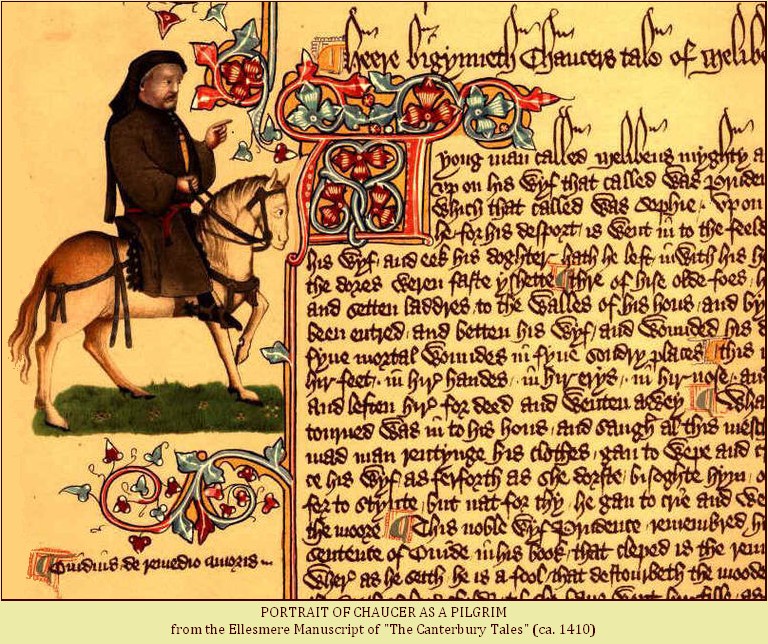 Heere bigynneth Chaucers tale of Melibe
A yong man called Melibeus myghty a
vp on his wyf that called was Pruden
which that called was Sophie . vp on
he for his desport is went in to the feeld
his wyf and eek his doghter hath he left inwith his h
the dores weren faste yshette thre of hise olde foes h
and setten laddres to the walles of his hous and by
been entred and betten his wyf and wounded his d
fyue mortal woundes in fyue sondry places this i
hir feet in hir handes in hir erys in hir nose an
and leften hir for deed and wenten awey Wha
tourned was in to his hous and saugh al this mesch
mad man rentynge his clothes gan to wepe and c
ce his wyf as ferforth as she dorste bisoghte hym
for to stynte but nat for thy he gan to crie and we
the moore This noble wyf Prudence remembred h
sentence of Ouide in his book that cleped is the rem
wher as he seith he is a fool that destourbeth the moode
Ouidius de remedio amoris
PORTRAIT OF CHAUCER AS A PILGRIM
from the Ellesmere Manuscript of "The Canterbury Tales" (ca. 1410)